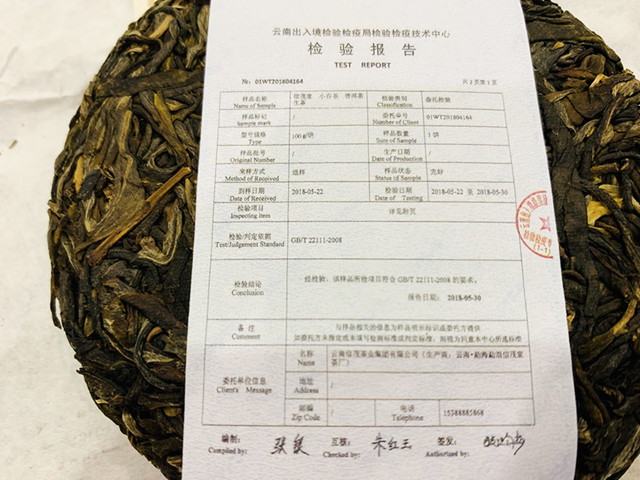 云南出入境检验检疫局检验检疫技术中心
检验报告
TEST REPORT
№: 01WT201804164
共 2 页第 1 页
样品名称 信茂堂 小谷茶 普洱茶 检验类别 委托检验
Name of Sample 生茶 Classification
样品标记 / 委托单号 01WT201804164
Sample mark Number of Client
型号规格 100 g/饼 样品数量 1 饼
Type Sum of Sample
样品批号 / 生产日期 /
Original Number Date of Production
来样方式 送样 样品状态 完好
Method of Received Status of Sample
到样日期 2018-05-22 检验日期 2018-05-22 至 2018-05-30
Date of Received Date of Testing
检验项目 详见附页
Inspecting item
检验/判定依据 GB/T 22111-2008
Test/Judgement Standard
检验结论 经检验：该样品所检项目符合 GB/T 22111-2008 的要求。
Conclusion
报告日期：2018-05-30
备注 与样品相关的信息为样品明示标识或委托方提供
Comment 如委托方未指定或未填写检测标准或判定标准，则视为同意本中心所选标准
委托单位信息
Client's Message
名称 云南信茂茶业集团有限公司（生产商：云南·勐海勐宿信茂堂
Name 茶厂）
地址 /
Address
邮编 / 电话 15388885868
Zip Code Telephone
编制: 互核: 朱红玉 签发:
Compiled by: Checked by: Authorized by:
(1-1)